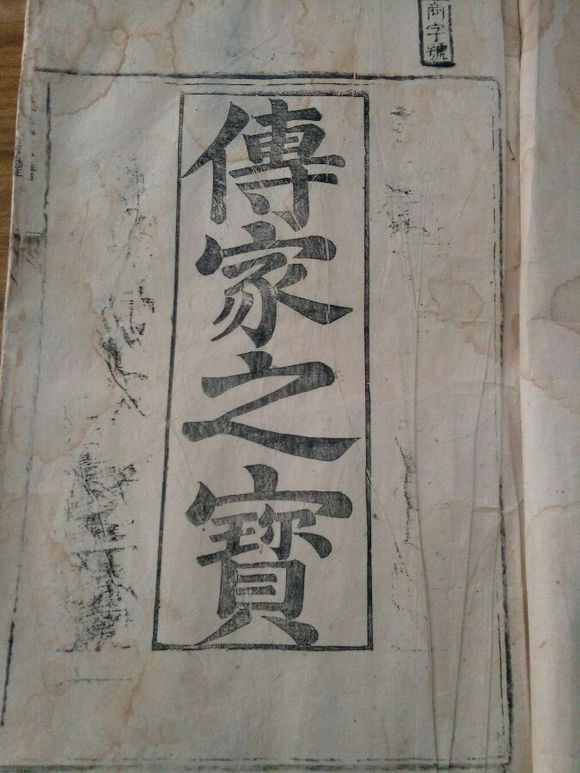 商字號
傳家之寶